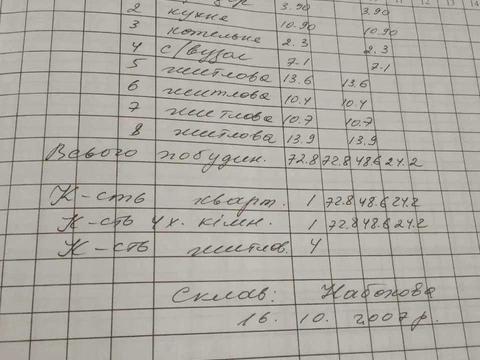 3.90 3.90
2 кухне 10.90 10.90
3 котельне 2.3 2.3
4 с/вузол 7.1 7.1
5 житлова 13.6 13.6
6 житлова 10.4 10.4
7 житлова 10.7 10.7
8 житлова 13.9 13.9
Всього побудин. 72.8 72.8 48.6 24.2
К-сть кварт. 1 72.8 48.6 24.2
К-сть 4х. кімн. 1 72.8 48.6 24.2
К-сть житлов. 4
Склав: Набокова
16. 10. 2007 р.